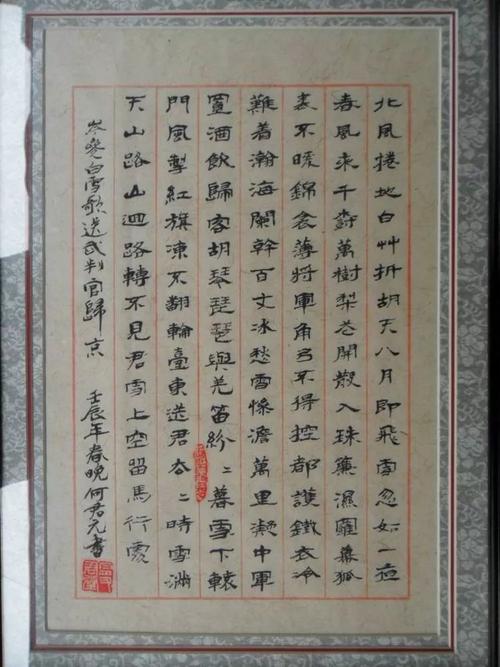 北風捲地白艸折胡天八月即飛雪忽如一夜
春風来千尌萬樹梨花開散入珠簾濕羅幕狐
裘不暖錦衾薄將軍角弓不得控都護鐵衣冷
難着瀚海闌幹百丈冰愁雲慘澹萬里凝中軍
置酒飲歸客胡琴琵琶與羌笛紛〻暮雪下轅
門風掣紅旗凍不翻輪臺東送君去〻時雪滿
天山路山迴路轉不見君雪上空留馬行處
岑參白雪歌送武判官歸京 壬辰年春晚何君元書